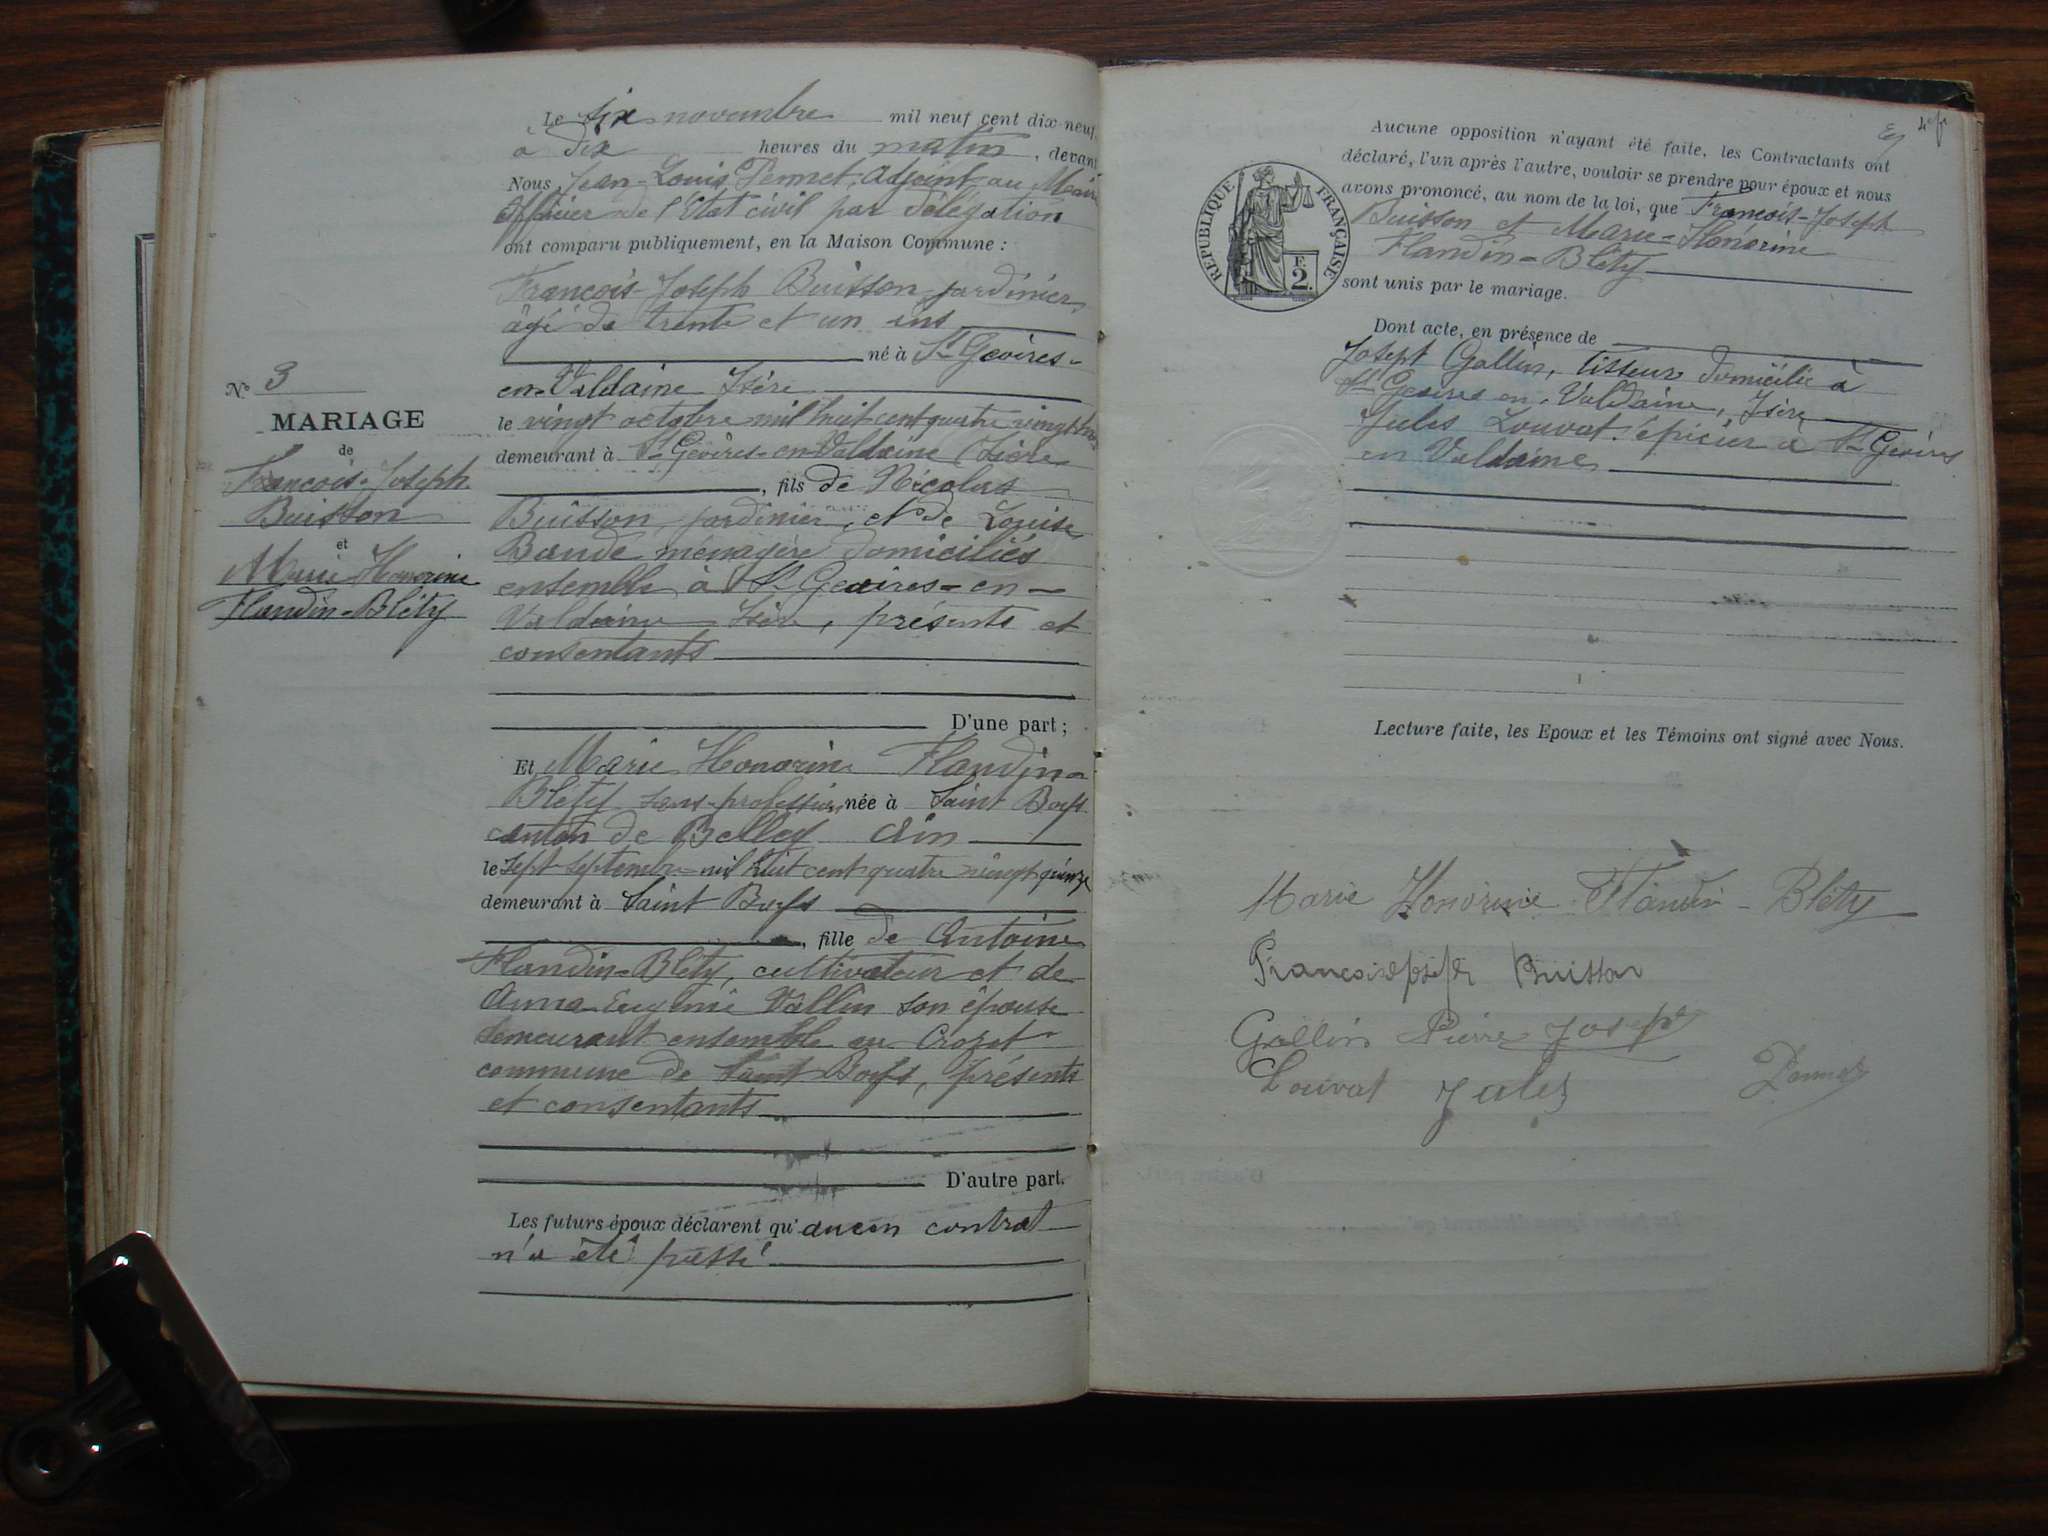 Le six novembre mil neuf cent dix-neuf
à dix heures du matin, devant
Nous Jean-Louis Pernet, Adjoint au Maire
officier de l'Etat civil par délégation
ont comparu publiquement, en la Maison Commune :
François-Joseph Buisson, jardinier,
âgé de trente et un ans
né à St Geoires-
en-Valdaine Isère
le vingt octobre mil huit cent quatre vingt
demeurant à St Geoires-en-Valdaine (Isère
, fils de Nicolas
Buisson, jardinier, et de Louise
Bande ménagère domiciliés
ensemble à St Geoires-en-
Valdaine Isère, présents et
consentants
D'une part ;
Et Marie Honorine Flandin-
Bléty sans-profession, née à Saint Boys
canton de Belley Ain
le sept septembre mil huit cent quatre vingt quinze
demeurant à Saint Boys
, fille de Antoine
Flandin-Bléty, cultivateur et de
Anna-Eugénie Vallin son épouse
demeurant ensemble au Crozet
commune de Saint Boys, présents
et consentants
D'autre part.
Les futurs époux déclarent qu'aucun contrat
n'a été passé
No 3
MARIAGE
de
François-Joseph
Buisson
et
Marie Honorine
Flandin-Bléty
Aucune opposition n'ayant été faite, les Contractants ont
déclaré, l'un après l'autre, vouloir se prendre pour époux et nous
avons prononcé, au nom de la loi, que François-Joseph
Buisson et Marie-Honorine
Flandin-Bléty
sont unis par le mariage.
REPUBLIQUE FRANÇAISE
F.
2.
Dont acte, en présence de
Joseph Gallin, tisseur domicilié à
St Geoires en-Valdaine, Isère
Jules Louvat, épicier à St Geoires
en Valdaine
Lecture faite, les Epoux et les Témoins ont signé avec Nous.
Marie Honorine Flandin-Bléty
François joseph Buisson
Gallin Pierre Joseph
Louvat Jules
Pernet